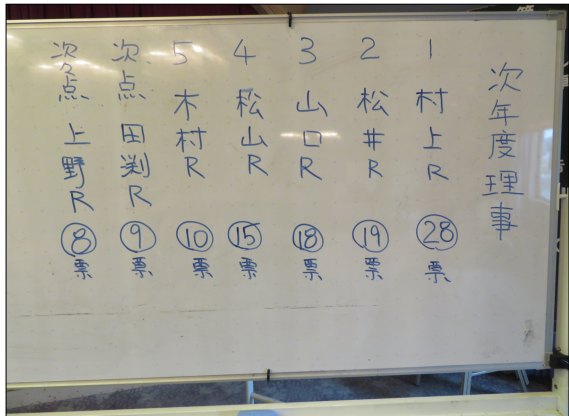 次年度理事
1 村上R ㉘票
2 松井R ⑲票
3 山口R ⑱票
4 松山R ⑮票
5 木村R ⑩票
次点 田渕R ⑨票
次々点 上野R ⑧票